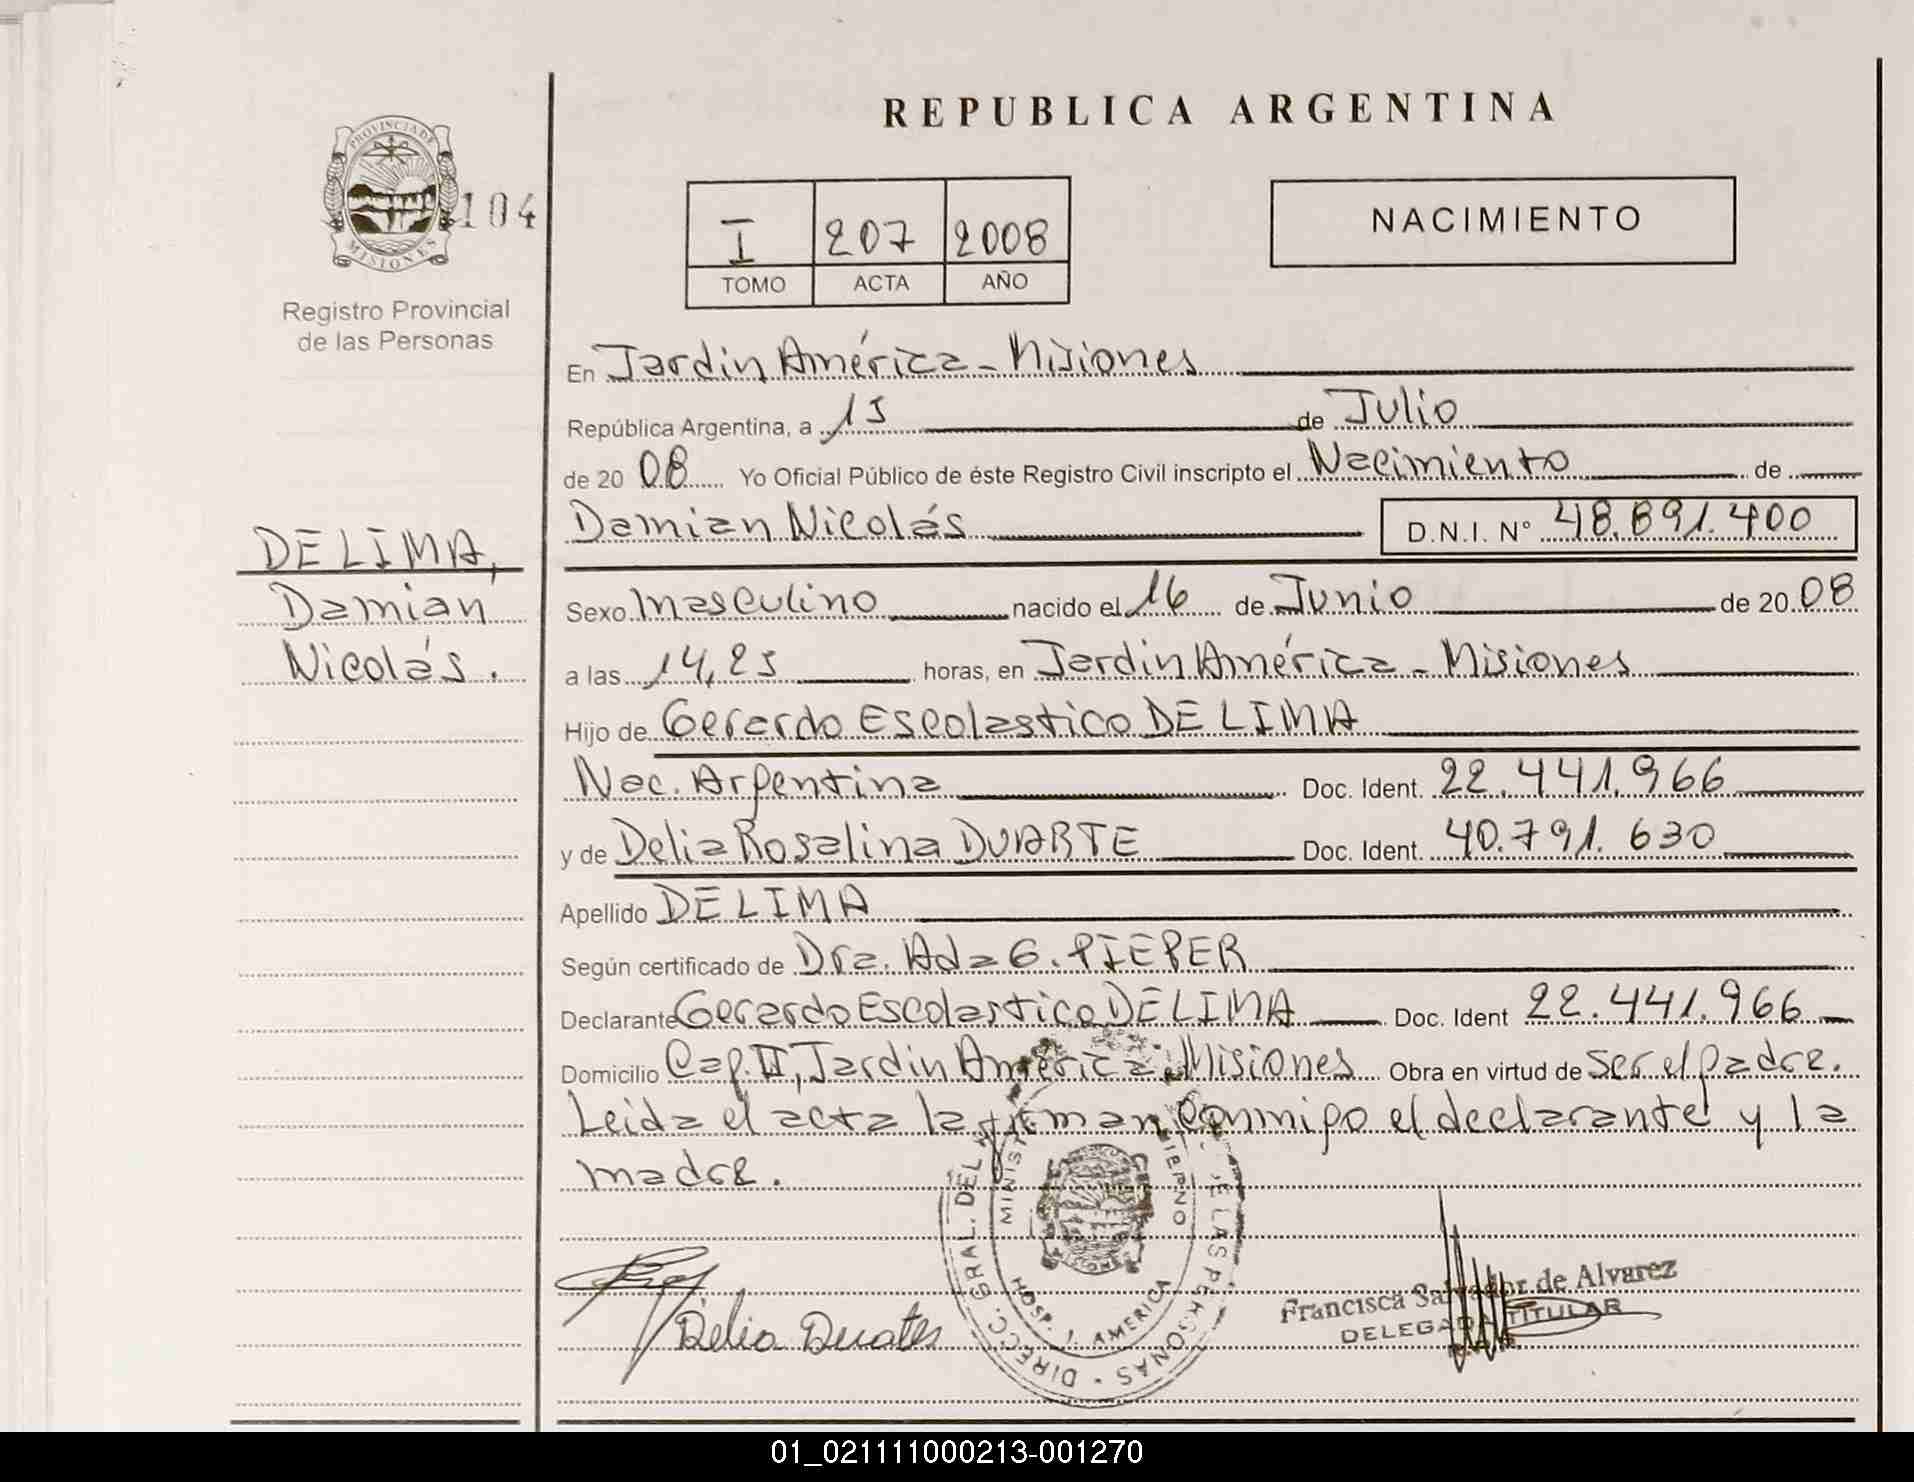 REPUBLICA ARGENTINA
PROVINCIA DE
MISIONES
104
Registro Provincial
de las Personas
I 207 2008
TOMO ACTA AÑO
NACIMIENTO
En Jardin América - Misiones
República Argentina, a 15 de Julio
de 20 08 Yo Oficial Público de éste Registro Civil inscripto el Nacimiento de
Damian Nicolás D.N.I. N° 48.891.400
DE LIMA,
Damian
Nicolás.
Sexo Masculino nacido el 16 de Junio de 20 08
a las 14,25 horas, en Jardin América - Misiones
Hijo de Gerardo Escolastico DE LIMA
Nac. Argentina Doc. Ident. 22.441.966
y de Delia Rosalina DUARTE Doc. Ident. 40.791.630
Apellido DE LIMA
Según certificado de Dra. Ada G. PIEPER
Declarante Gerardo Escolastico DE LIMA Doc. Ident 22.441.966
Domicilio Cap. II, Jardin América - Misiones Obra en virtud de ser el padre.
Leida el acta la firman conmigo el declarante y la
madre.
DIRECC. GRAL. DEL DE LAS PERSONAS
HOSP. J. AMERICA
Delia Duates
Francisca Salvador de Alvarez
DELEGADA TITULAR
01_021111000213-001270